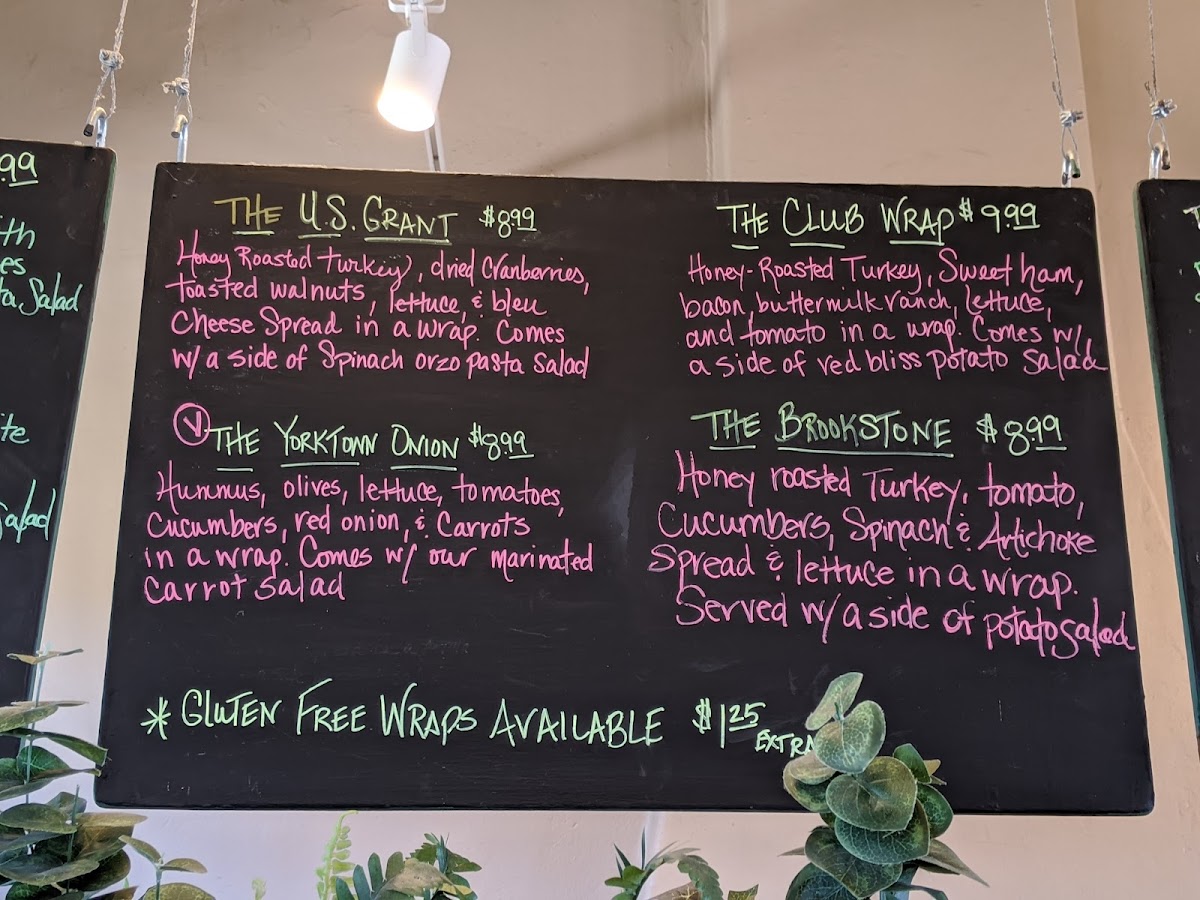 .99
th
es
ta Salad
te
Salad
THE U.S. GRANT $8.99
Honey Roasted turkey, dried cranberries,
toasted walnuts, lettuce, & bleu
Cheese Spread in a wrap. Comes
w/ a side of Spinach orzo pasta salad
V
THE YORKTOWN ONION $8.99
Hummus, olives, lettuce, tomatoes,
Cucumbers, red onion, & Carrots
in a wrap. Comes w/ our marinated
Carrot Salad
THE CLUB WRAP $9.99
Honey-Roasted Turkey, Sweet ham,
bacon, buttermilk ranch, lettuce,
and tomato in a wrap. Comes w/
a side of red bliss potato Salad
THE BROOKSTONE $8.99
Honey roasted Turkey, tomato,
Cucumbers, Spinach & Artichoke
Spread & lettuce in a wrap.
Served w/ a side of potato salad
* GLUTEN FREE WRAPS AVAILABLE $1.25
EXTRA